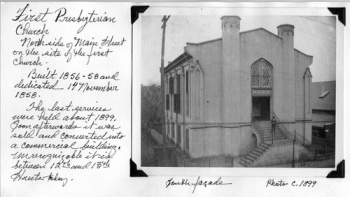 First Presbyterian
Church
North side of Main Street
on the site of the first
church.
Built 1856-58 and
dedicated 14 November
1858.
The last services
were held about 1899.
Soon afterwards it was
sold and converted into
a commercial building.
Unrecognizable it is
between 12th and 13th
Streets today.
South façade
Photo c. 1899